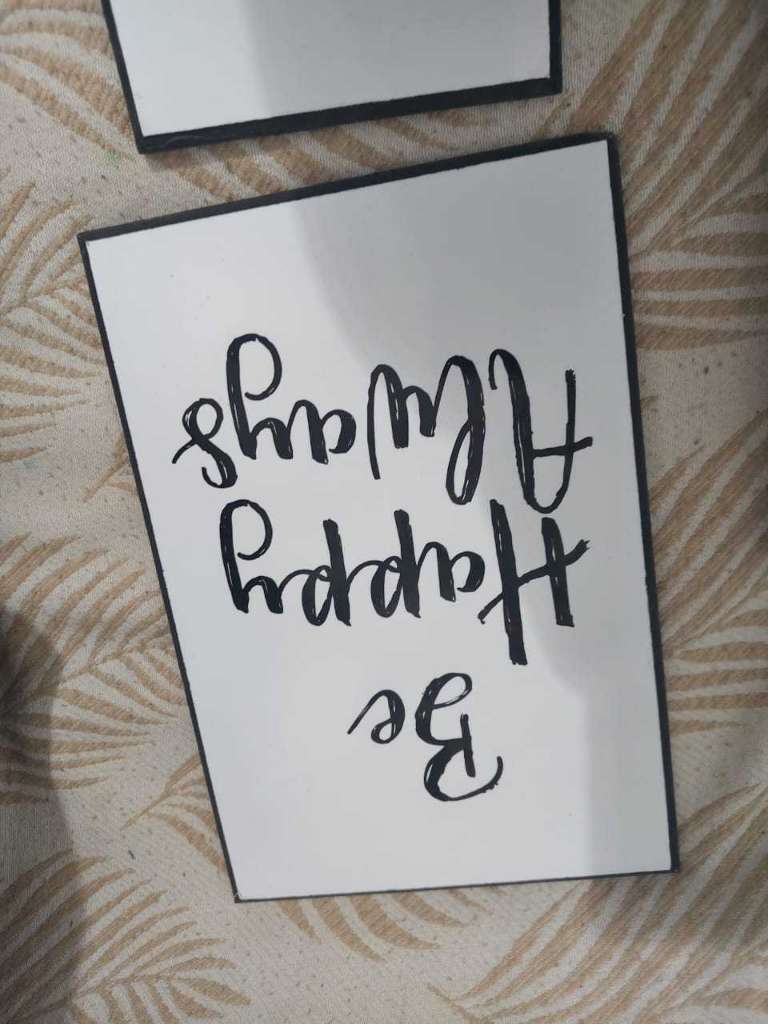 Be
Happy
Always